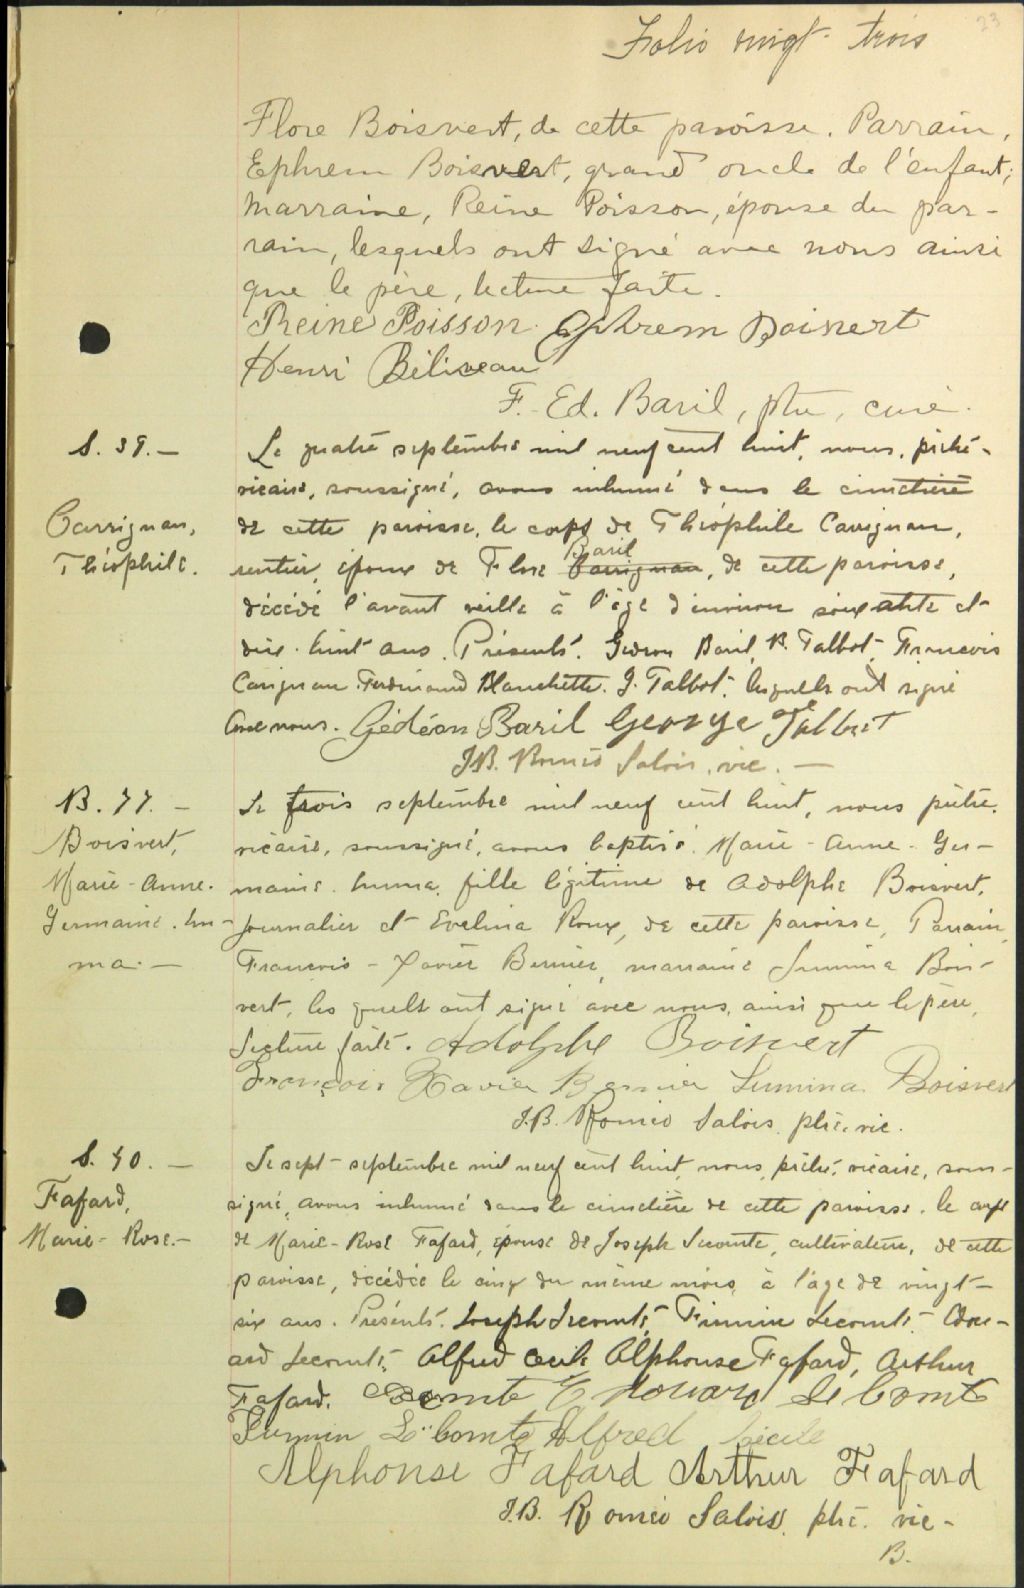 23
Folio vingt-trois
Flore Boisvert, de cette paroisse. Parrain,
Ephrem Boisvert, grand oncle de l'enfant;
Marraine, Reine Poisson, épouse du par-
rain, lesquels ont signé avec nous ainsi
que le père, lecture faite.
Reine Poisson Ephrem Boisvert
Henri Béliveau
F. Ed. Baril, ptre, curé.
S. 39. —
Carrignan,
Théophile.
Le quatre septembre mil neuf cent huit, nous, prêtre-
vicaire, soussigné, avons inhumé dans le cimetière
de cette paroisse, le corps de Théophile Carrignan,
rentier, époux de Flore Carrignan Baril, de cette paroisse,
décédé l'avant veille à l'âge d'environ soixante et
dix-huit ans. Présents. Gedeon Baril, B. Talbot, Francois
Carignan. Ferdinand Blanchette. G. Talbot, lesquels ont signé
avec nous. Gédéon Baril George Talbot
J.B. Roméo Salois, vic. —
B. 77. —
Boisvert,
Marie-Anne.
Germaine. Hu-
ma. —
Le trois septembre mil neuf cent huit, nous prêtre.
vicaire, soussigné, avons baptisé Marie-Anne-Ger-
maine. huma, fille légitime de Adolphe Boisvert,
journalier et Evelina Roux, de cette paroisse, Parrain,
François-Xavier Bernier, marraine Lumina Bois-
vert, les quels ont signé avec nous, ainsi que le père,
Lecture faite. Adolphe Boisvert
François Xavier Bernier Lumina Boisvert
J.B. Roméo Salois, ptre. vic.
S. 40. —
Fafard,
Marie-Rose.—
Le sept-septembre mil neuf cent huit, nous, prêtre, vicaire, sous-
signé, avons inhumé dans le cimetière de cette paroisse, le corps
de Marie-Rose Fafard, épouse de Joseph Lecomte, cultivateur, de cette
paroisse, décédée le cinq du même mois, à l'âge de vingt-
six ans. Présents. Joseph Lecomte, Firmin Lecomte, Edou-
ard Lecomte, Alfred Cecile Alphonse Fafard, Arthur
Fafard. Lecomte Edouard LeComte
Firmin LeComte Alfred Cécile
Alphonse Fafard Arthur Fafard
J.B. Roméo Salois, ptre. vic-
B.